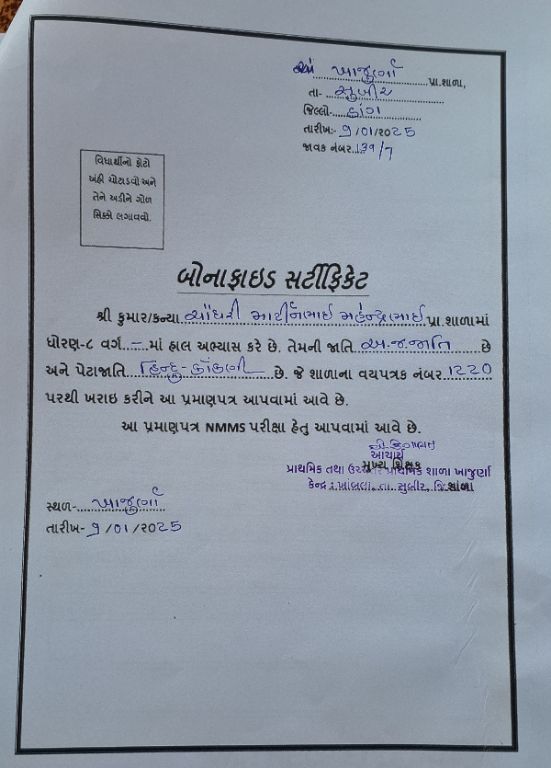 ખાજુર્ણા પ્રા.શાળા,
તા- સુબીર
જિલ્લો- ડાંગ
તારીખ:- 9/01/૨૦25
જાવક નંબર.139/7
વિધાર્થીનો ફોટો
અહીં ચોટાડવો અને
તેને અડીને ગોળ
સિક્કો લગાવવો.
બોનાફાઇડ સર્ટીફિકેટ
શ્રી કુમાર/કન્યા ચૌધરી માર્ટીનભાઈ મહેન્દ્રભાઈ પ્રા.શાળામાં
ધોરણ-૮ વર્ગ - માં હાલ અભ્યાસ કરે છે. તેમની જાતિ અ.જ.જાતિ છે
અને પેટાજાતિ હિન્દુ-કોંકણી છે. જે શાળાના વયપત્રક નંબર 1220
પરથી ખરાઇ કરીને આ પ્રમાણપત્ર આપવામાં આવે છે.
આ પ્રમાણપત્ર NMMS પરીક્ષા હેતુ આપવામાં આવે છે.
આચાર્ય
મુખ્ય શિક્ષક
પ્રાથમિક તથા ઉચ્ચતર પ્રાથમિક શાળા ખાજુર્ણા
કેન્દ્ર : તા. સુબીર, જિ. શાળા
સ્થળ- ખાજુર્ણા
તારીખ- 9/01/૨૦25